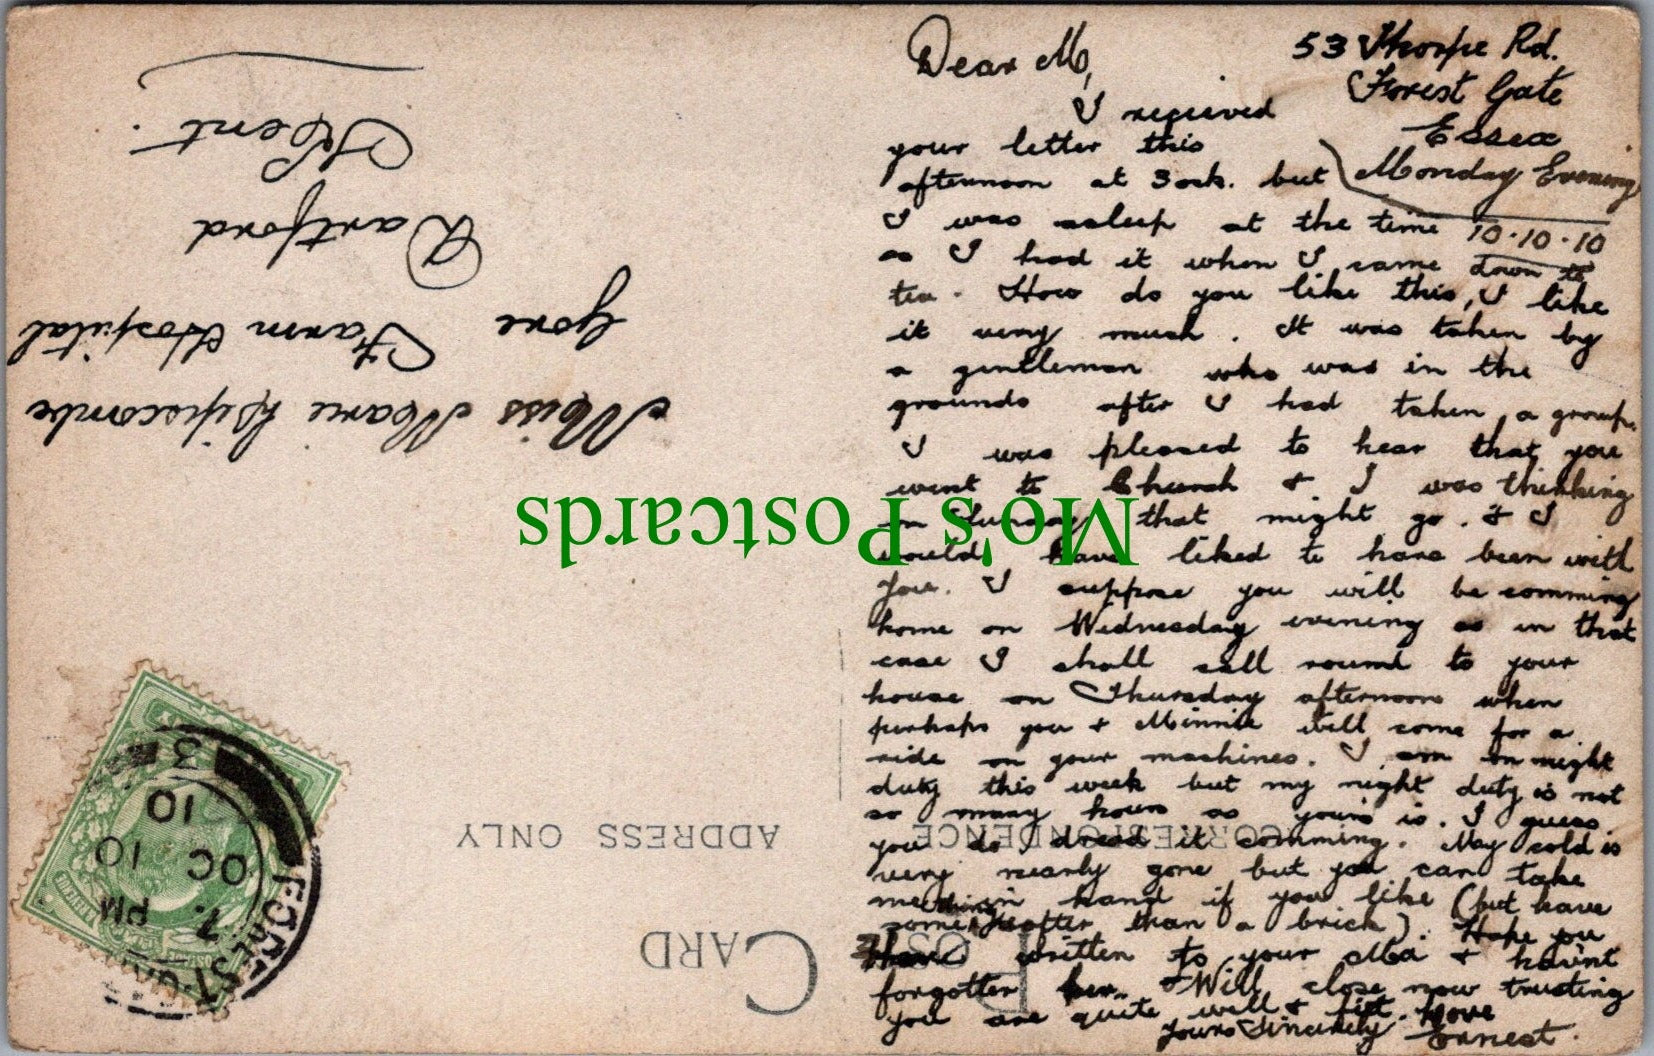 53 Thorpe Rd.
Forest Gate
Essex
Monday Evening
10.10.10
Dear M,
I recieved
your letter this
afternoon at 3 ock. but
I was asleep at the time
as I had it when I came down to
tea. How do you like this, I like
it very much. It was taken by
a gentleman who was in the
grounds after I had taken a group.
I was pleased to hear that you
went to Church & I was thinking
on Sunday that might go. & I
would have liked to have been with
you. I suppose you will be comming
home on Wednesday evening as in that
case I shall call round to your
house on Thursday afternoon when
perhaps you & Minnie will come for a
ride on your machines. I am on night
duty this week but my night duty is not
so many hours as yours is. I guess
you do dread it comming. My cold is
very nearly gone but you can take
me in hand if you like (but have
something softer than a brick). Hope you
have written to your Ma & havint
forgotten her. Will close now trusting
you are quite well & fit. Love
Yours Sincerely Ernest.
Miss Marie Lipscombe
Gore Farm Hospital
Dartford
Kent.
POST CARD
CORRESPONDENCE
ADDRESS ONLY
FOREST GATE
7. PM
OC 10
10
3
Mo's Postcards